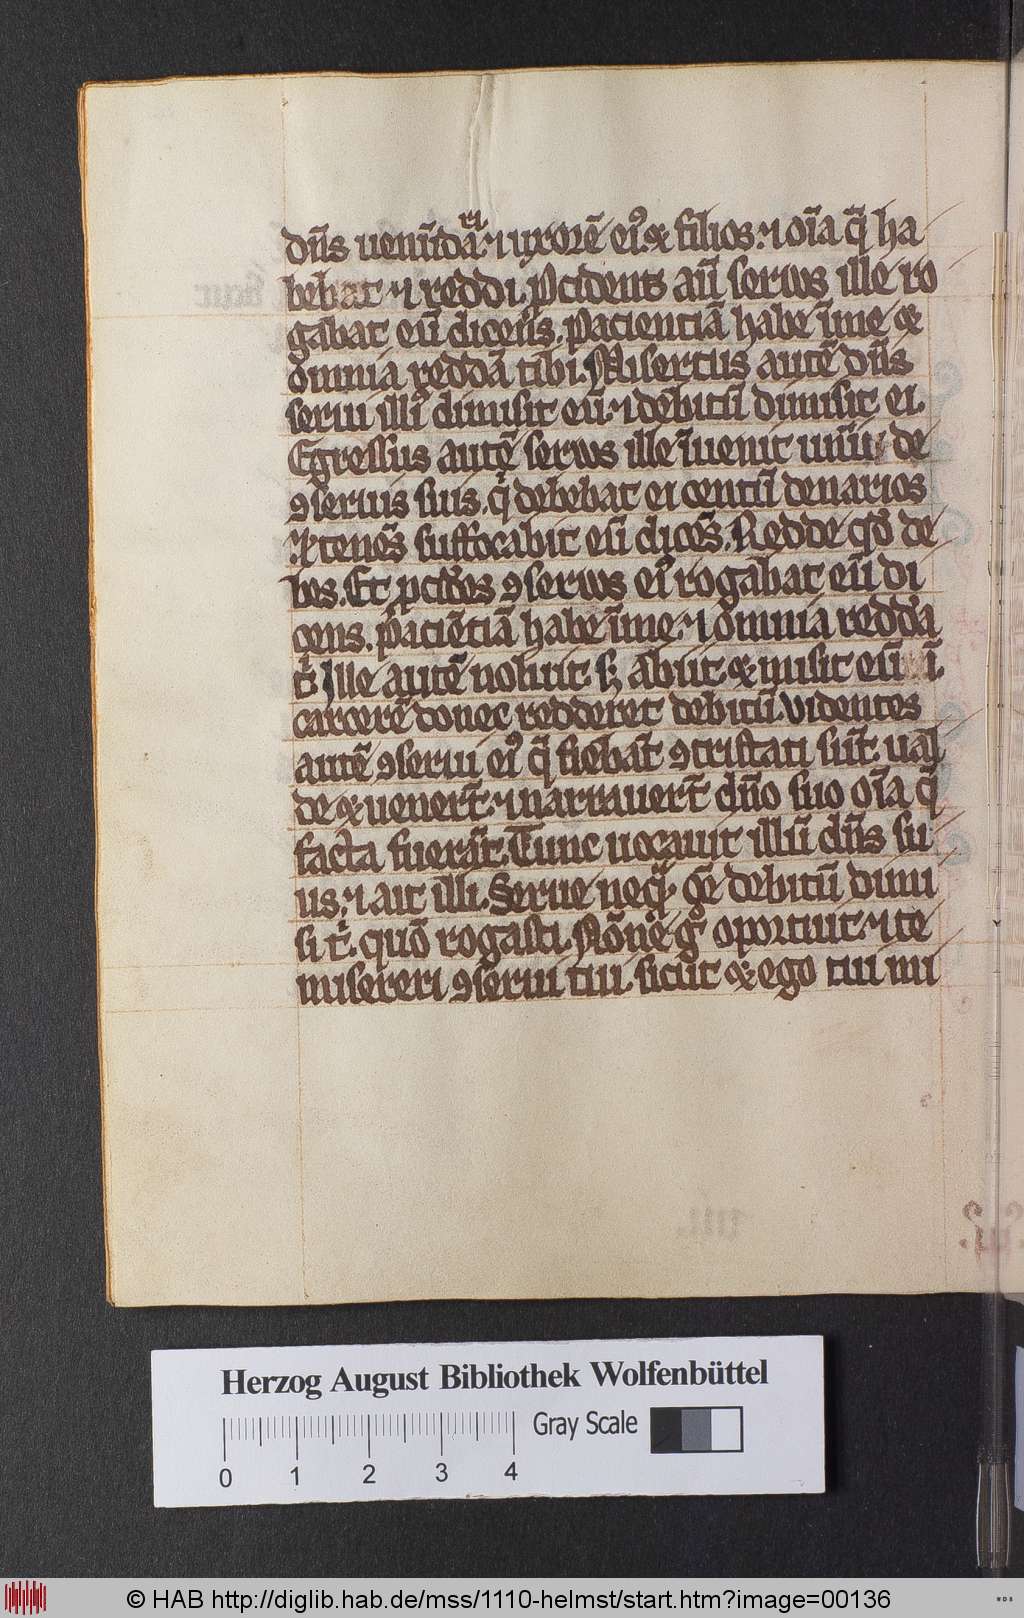 ri
dn̄s uenūdā ⁊ uxorē ei⁹ & filios ⁊ oīa q̄ ha
bebat ⁊ reddi. p̄cidens aū seruus ille ro
gabat eū dicens. pacienciā habe ī me &
omnia reddā tibi. Misertus autē dn̄s
serui illi⁹ dimisit eū ⁊ debitū dimisit ei.
Egressus autē seruus ille īuenit unū de
ꝯseruis suis. q̄ debebat ei centū denarios
⁊ tenēs suffocabit eū dicēs. Redde qđ de
bes. Et p̄cidēs ꝯseruus ei⁹ rogabat eū di
cens. paciēciā habe ī me. ⁊ omnia reddā
tⁱ. Ille autē noluit. sꝫ abiit & misit eū ī
carcerē donec redderet debitū. Videntes
autē ꝯserui ei⁹ q̄ fiebāt ꝯtristati sūt ual
de & uenerūt ⁊ narrauerūt dn̄o suo oīa q̄
facta fuerāt. Tunc uocauit illū dn̄s su
us. ⁊ ait illi. Serue neqͣ. oē debitū dimi
si tⁱ. qm̄ rogasti. Nōne gͦ oportuit ⁊ te
misereri ꝯserui tui. sicut & ego tui mi
Herzog August Bibliothek Wolfenbüttel
Gray Scale
0 1 2 3 4
© HAB http://diglib.hab.de/mss/1110-helmst/start.htm?image=00136